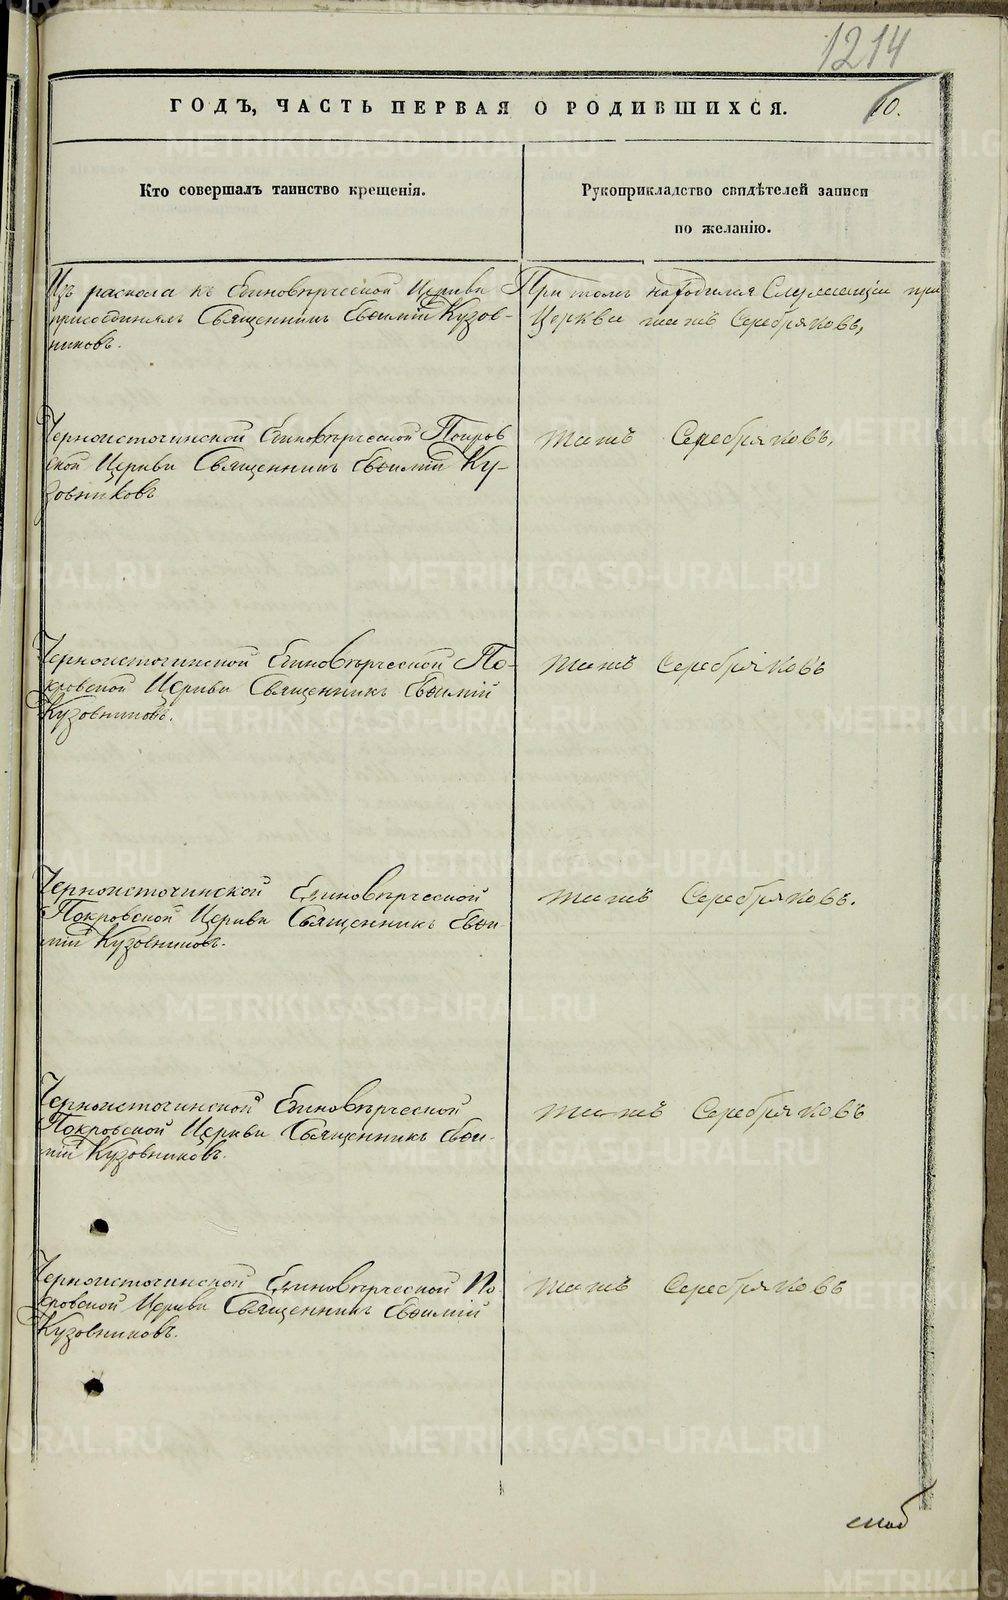 1214
ГОДЪ, ЧАСТЬ ПЕРВАЯ О РОДИВШИХСЯ.
10.
Кто совершалъ таинство крещенія.
Рукоприкладство свидѣтелей записи
по желанію.
Изъ раскола къ Единовѣрческой Церкви
присоединялъ Священникъ Евѳимій Кузов-
никовъ.
При томъ находился Служащій при
Церкви тотъ Серебряковъ,
Черноисточинской Единовѣрческой Покров
ской Церкви Священникъ Евѳимій Ку-
зовниковъ
тотъ Серебряковъ,
Черноисточинской Единовѣрческой По-
кровской Церкви Священникъ Евѳимій
Кузовниковъ.
тотъ Серебряковъ
Черноисточинской Единовѣрческой
Покровской Церкви Священникъ Евѳи-
мій Кузовниковъ.
тотъ Серебряковъ.
Черноисточинской Единовѣрческой
Покровской Церкви Священникъ Евѳи-
мій Кузовниковъ.
тотъ Серебряковъ
Черноисточинской Единовѣрческой По
кровской Церкви Священникъ Евѳимій
Кузовниковъ.
тотъ Серебряковъ
METRIKI.GASO-URAL.RU